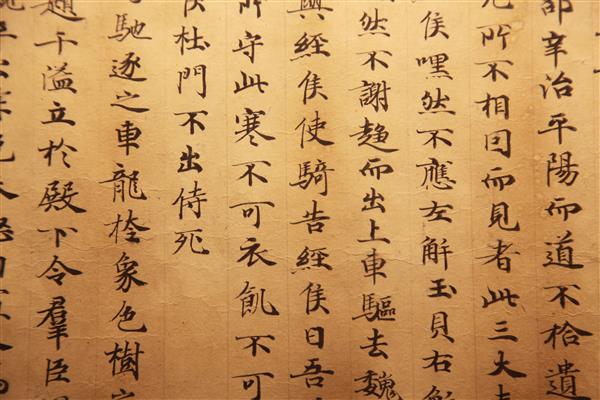 邵辛治平陽而道不拾遺
所不相囙而見者此三大
侯嘿然不應左解玉貝右解
然不謝趍而出上車驅去魏
與經侯使騎告經侯曰吾
所守此寒不可衣飢不可
侯杜門不出侍死
馳逐之車龍栓象色樹
趙干溢立於殿下令羣臣